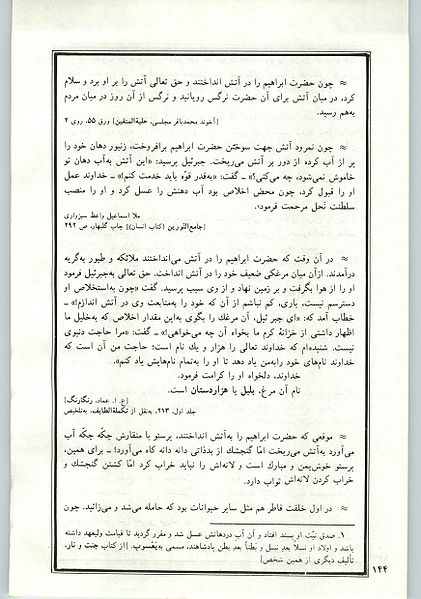 ≈ چون حضرت ابراهیم را در آتش انداختند و حق تعالی آتش را بر او برد و سلام
کرد، در میان آتش برای آن حضرت نرگس رویانید و نرگس از آن روز در میان مردم
بههم رسید.
[آخوند محمدباقر مجلسی، حلیةالمتقین] ورق ۵۵، روی ۲
≈ چون نمرود آتش جهت سوختن حضرت ابراهیم برافروخت، زنبور دهان خود را
پر از آب کرده از دور بر آتش می‌ریخت. جبرئیل پرسید: «این آتش به‌آب دهان تو
خاموش نمی‌شود، چه می‌کنی؟» ـ گفت: «به‌قدر قوّه باید خدمت کنم» ـ خداوند عمل
او را قبول کرد، چون محض اخلاص بود آب دهنش را عسل کرد و او را منصب
سلطنت نحل مرحمت فرمود۱.
ملا اسماعیل واعظ سبزواری
[جامع‌النورین (کتاب انسان)] چاپ گلبهار، ص ۲۹۲
≈ در آن وقت که حضرت ابراهیم را در آتش می‌انداختند ملائکه و طیور به‌گریه
درآمدند. ازآن میان مرغکی ضعیف خود را در آتش انداخت. حق تعالی به‌جبرئیل فرمود
او را از هوا بگرفت و بر زمین نهاد و از وی سبب پرسید. گفت «چون به‌استخلاص او
دسترسم نیست، باری، کم نباشم از آن که خود را به‌متابعت وی در آتش اندازم» ـ
خطاب آمد که: «ای جبرئیل، آن مرغك را بگوی به‌این مقدار اخلاص که به‌خلیل ما
اظهار داشتی از خزانهٔ کرم ما بخواه آن چه می‌خواهی!» ـ گفت: «مرا حاجت دنیوی
نیست. شنیده‌ام که خداوند تعالی را هزار و یك نام است؛ حاجت من آن است که
خداوند نام‌های خود رابه‌من یاد دهد تا او را به‌تمام نام‌هایش یاد کنم».
خداوند، دلخواه او را کرامت فرمود.
نام آن مرغ، بلبل یا هزاردستان است.
[ع. ا. عماد، رنگارنگ]
جلد اول، ۲۱۳، به‌نقل از تکملةالطایف، به‌تلخیص
≈ موقعی که حضرت ابراهیم را به‌آتش انداختند، پرستو با منقارش چکّه چکّه آب
می‌آورد به‌آتش می‌ریخت امّا گنجشك از بدذاتی دانه دانه کاه می‌آورد! ـ برای همین،
پرستو خوش‌یمن و مبارك است و لانه‌اش را نباید خراب کرد امّا کشتن گنجشك و
خراب کردن لانه‌اش ثواب دارد.
≈ در اول خلقت قاطر هم مثل سایر حیوانات بود که حامله می‌شد و می‌زائید. چون
۱. صدق نیّت او پسند افتاد و آن آب دردهانش عسل شد و مقرر گردید تا قیامت ولیعهد داشته
باشد و اولاد او نسلاً بعد نسل و بطناً بعد بطن پادشاهند، مسمی به‌یعسوب. [از کتاب جنت و نار،
تألیف دیگری از همین شخص]
۱۴۴